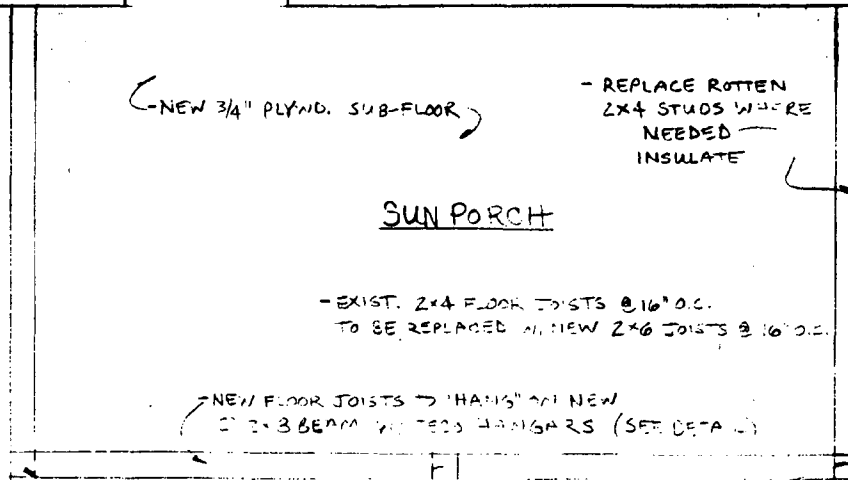 -NEW 3/4" PLYWD. SUB-FLOOR
- REPLACE ROTTEN
2x4 STUDS WHERE
NEEDED
INSULATE
SUN PORCH
- EXIST. 2x4 FLOOR JOISTS @ 16" O.C.
TO BE REPLACED W/ NEW 2x6 JOISTS @ 16" O.C.
-NEW FLOOR JOISTS TO "HANG" ON NEW
BEAM HANGARS (SEE DETAIL)